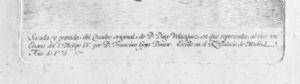 Sacada y gravada del Quadro original de D. Diego Velazquez en que representa al vivo un
Enano del S. Phelipe IV. por D. Francisco Goya Pintor. Existe en el R. Palacio de Madrid.
Año de 1778.